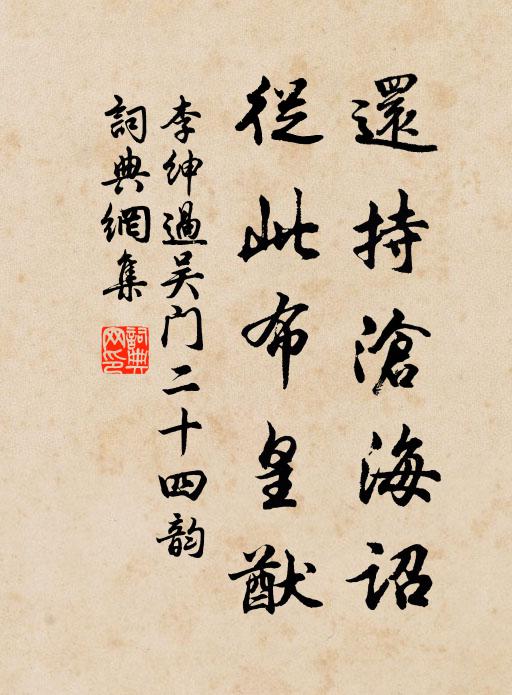 還持滄海詔
從此布皇猷
李紳過吴门二十四韵
詞典網集
詞典网印